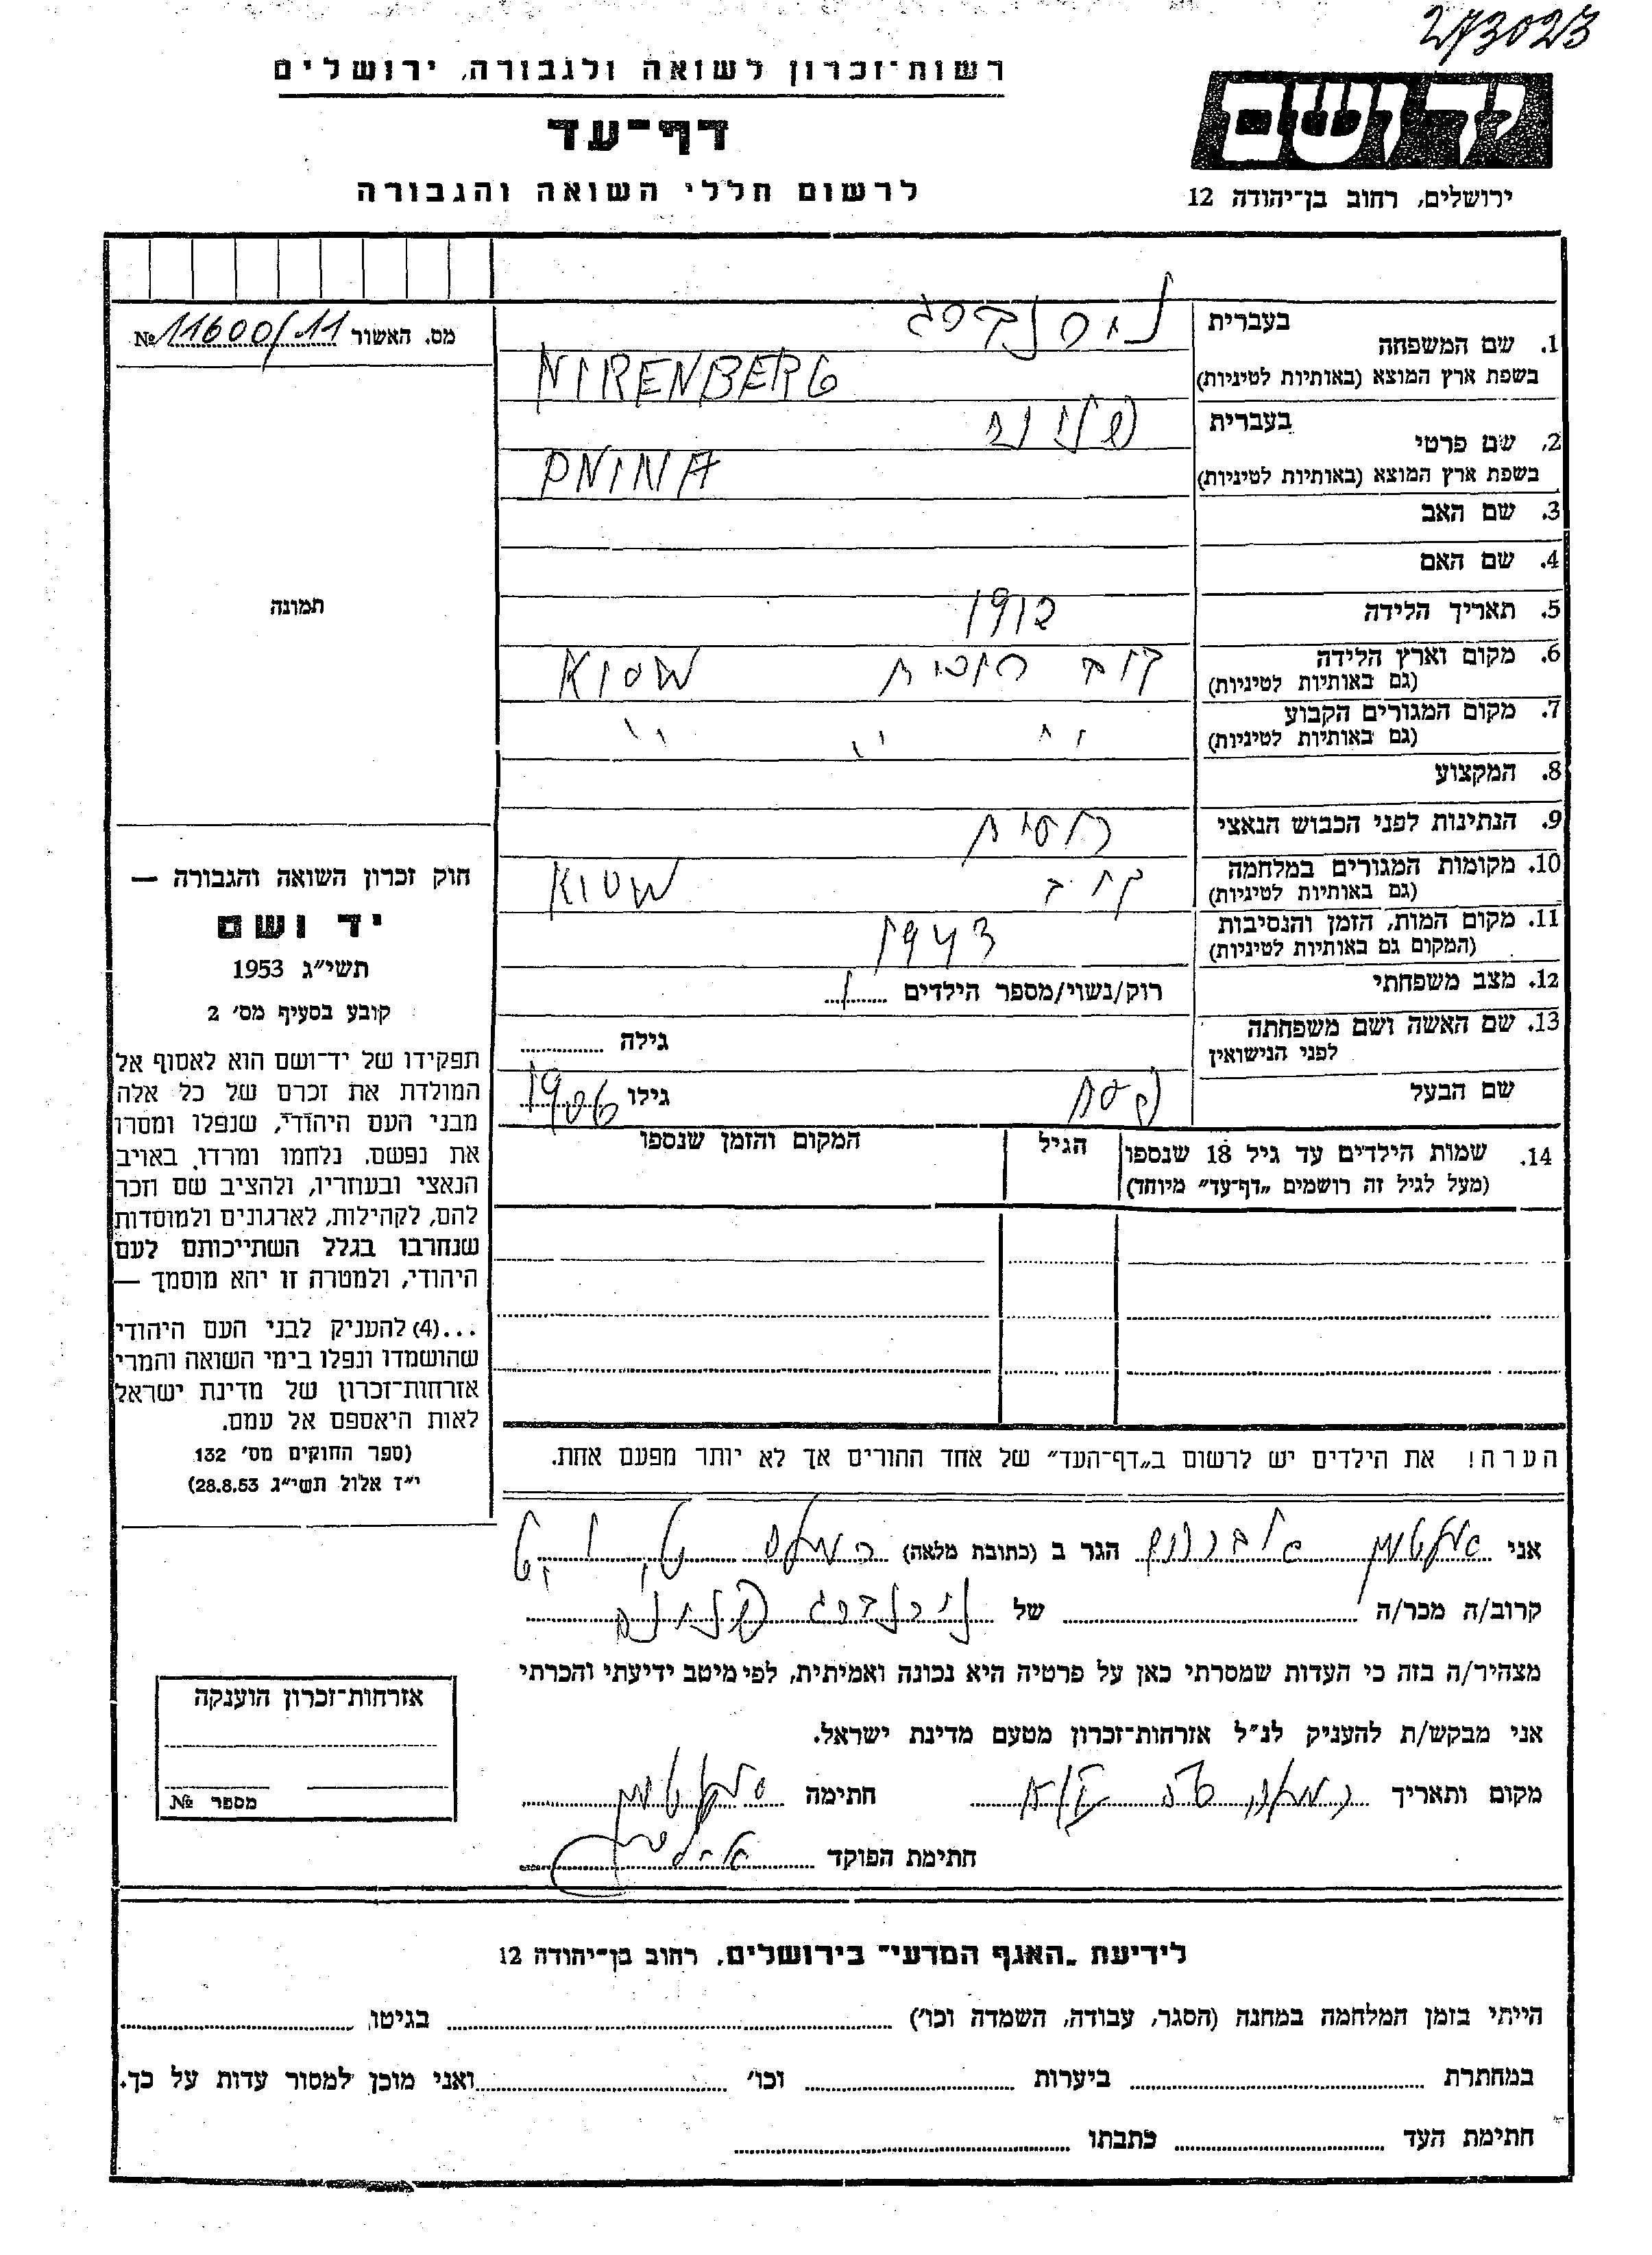 273023
רשות־זכרון לשואה ולגבורה, ירושלים
דף־עד
לרשום חללי השואה והגבורה
יד ושם
ירושלים, רחוב בן־יהודה 12
מס. האשור № 11600/11
1. שם המשפחה בעברית נירנברג
בשפת ארץ המוצא (באותיות לטיניות) NIRENBERG
2. שם פרטי בעברית פנינה
בשפת ארץ המוצא (באותיות לטיניות) PNINA
3. שם האב
4. שם האם
5. תאריך הלידה 1912
6. מקום וארץ הלידה קוב רוסיה KIOW
(גם באותיות לטיניות)
7. מקום המגורים הקבוע " " "
(גם באותיות לטיניות)
8. המקצוע
9. הנתינות לפני הכבוש הנאצי רוסית
10. מקומות המגורים במלחמה קוב KIOW
(גם באותיות לטיניות)
11. מקום המות, הזמן והנסיבות 1943
(המקום גם באותיות לטיניות)
12. מצב משפחתי רוק/נשוי/מספר הילדים 1
13. שם האשה ושם משפחתה גילה
לפני הנישואין
שם הבעל פסח גילו 1906
14. שמות הילדים עד גיל 18 שנספו הגיל המקום והזמן שנספו
(מעל לגיל זה רושמים „דף־עד" מיוחד)
הערה! את הילדים יש לרשום ב„דף־העד" של אחד ההורים אך לא יותר מפעם אחת.
תמונה
חוק זכרון השואה והגבורה —
יד ושם
תשי״ג 1953
קובע בסעיף מס׳ 2
תפקידו של יד־ושם הוא לאסוף אל
המולדת את זכרם של כל אלה
מבני העם היהודי, שנפלו ומסרו
את נפשם, נלחמו ומרדו באויב
הנאצי ובעוזריו, ולהציב שם וזכר
להם, לקהילות, לארגונים ולמוסדות
שנחרבו בגלל השתייכותם לעם
היהודי, ולמטרה זו יהא מוסמך —
...(4) להעניק לבני העם היהודי
שהושמדו ונפלו בימי השואה והמרי
אזרחות־זכרון של מדינת ישראל
לאות היאספם אל עמם.
(ספר החוקים מס׳ 132
י״ז אלול תשי״ג 28.8.53)
אני הגר ב (כתובת מלאה)
קרוב/ה מכר/ה של נירנברג פנינה
מצהיר/ה בזה כי העדות שמסרתי כאן על פרטיה היא נכונה ואמיתית, לפי מיטב ידיעתי והכרתי
אני מבקש/ת להעניק לנ״ל אזרחות־זכרון מטעם מדינת ישראל.
מקום ותאריך חתימה
חתימת הפוקד
אזרחות־זכרון הוענקה
מספר №
לידיעת „האגף המדעי" בירושלים, רחוב בן־יהודה 12
הייתי בזמן המלחמה במחנה (הסגר, עבודה, השמדה וכו׳) בגיטו
במחתרת ביערות וכו׳ ואני מוכן למסור עדות על כך.
חתימת העד כתבתו